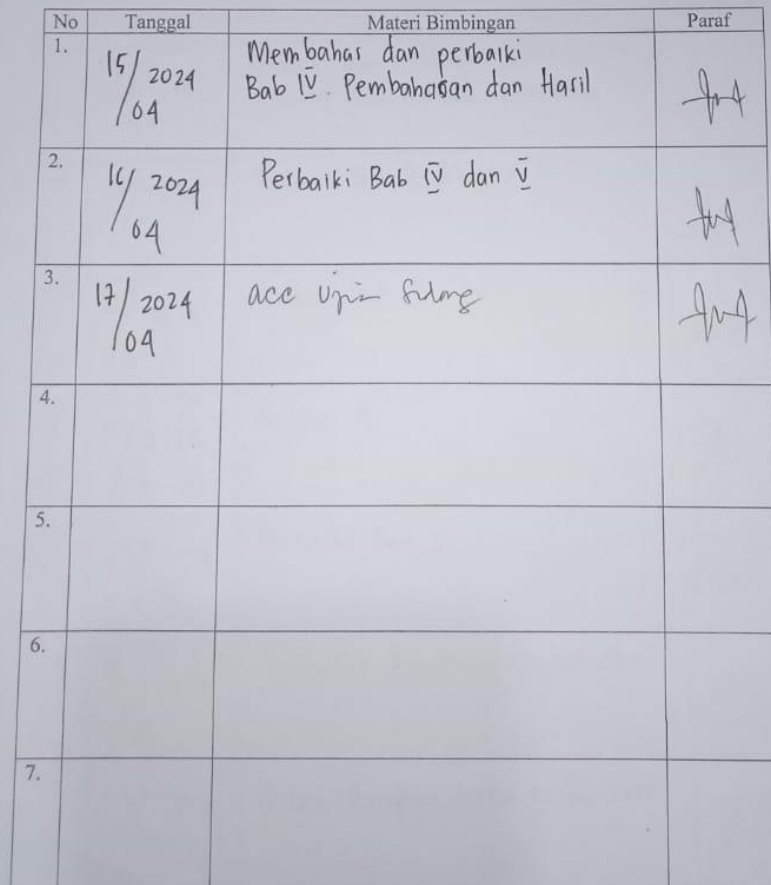 No Tanggal Materi Bimbingan Paraf
1. 15/04 2024 Membahas dan perbaiki
Bab IV. Pembahasan dan Hasil
2. 16/04 2024 Perbaiki Bab IV dan V
3. 17/04 2024 acc Ujian
4.
5.
6.
7.